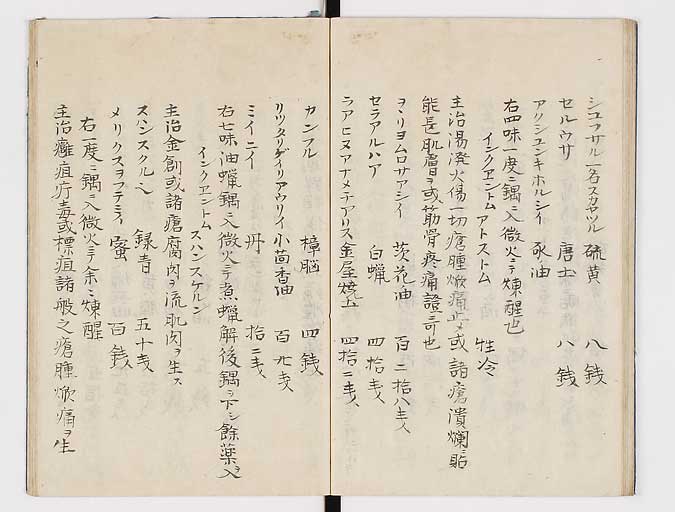 シユフサル一名スカヤツル 硫黄 八銭
セルウサ 唐土 八銭
アクシユンキホルシイ 豕油
右四味一度ニ鍋ニ入微火ニテ煉醒也
インクヱントム アトストム 性冷
主治湯溌火傷一切瘡腫焮痛 或 諸瘡潰爛ニ貼
能長肌膚ヲ或筋骨疼痛證ニ可也
ヲヽリヨムロサアシイ 茨花油 百二拾八
セラアルハア 白蝋 四拾
ラアヒスアナメテアリス 金屋焼五 四拾二
カンフル 樟脳 四銭
小茴香油 百九
ミイニイ 丹 拾二
右七味油蝋鍋ニ入微火ニテ煮蝋解後鍋ヲ下シ餘薬ヲ入
インクヱントム スハンスケルン
主治金創或諸瘡腐肉ヲ流肌肉ヲ生ス
スハンスクルン 緑青 五十
メリクスヲフテミライ 蜜 百銭
右一度ニ鍋ニ入微火ニテ余ニ煉醒
主治癰疽疔毒或標疽諸般之瘡腫焮痛ヲ生